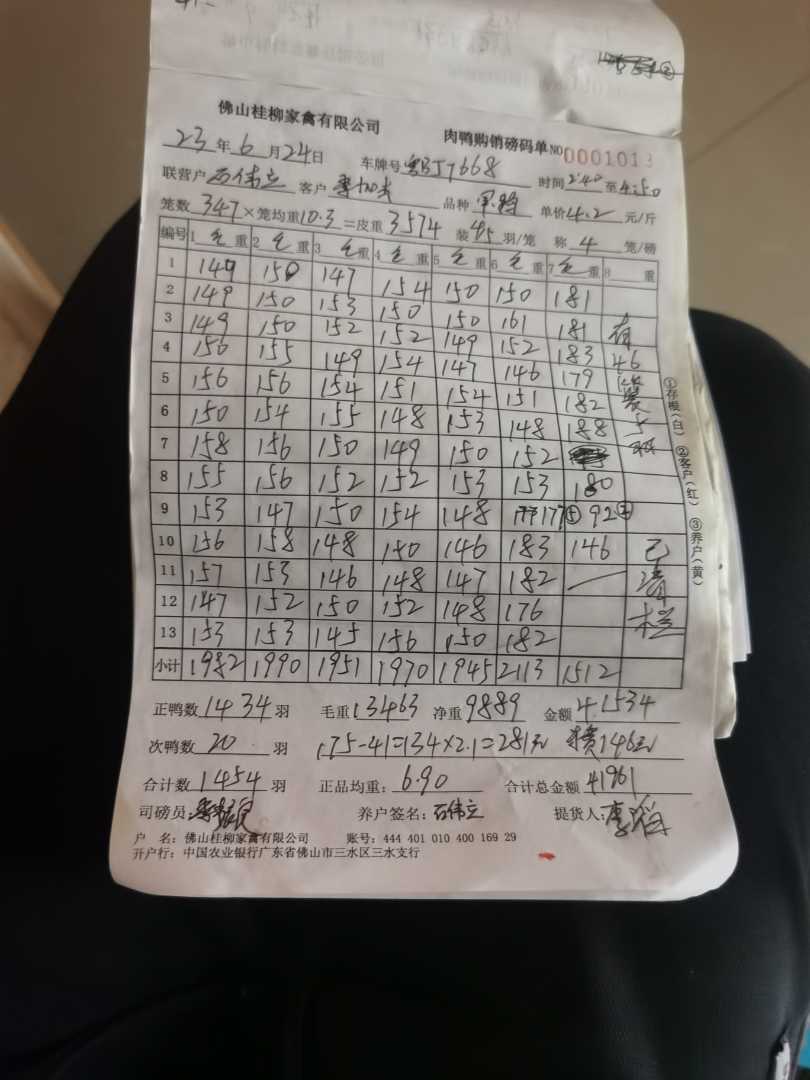 佛山桂柳家禽有限公司 肉鸭购销磅码单 NO 0001013
23 年 6 月 24 日 车牌号 粤BJ7668 时间 2:40 至 4:50
联营户 石伟立 客户 品种 单价 4.2 元/斤
笼数 347 × 笼均重 10.3 = 皮重 3574 装 羽/笼 称 4 笼/磅
编号 1 毛 重 2 毛 重 3 毛 重 4 毛 重 5 毛 重 6 毛 重 7 毛 重 8 重
1 149 150 147 154 150 150 181
2 149 150 153 150 150 161 181
3 149 150 152 152 149 152 183 有
4 156 155 149 154 147 146 179 46
5 156 156 154 151 154 151 182 装
6 150 154 155 148 153 148 188 5
7 158 156 150 149 150 152
8 155 156 152 152 153 153 180
9 153 147 150 154 148 177 92
10 156 158 148 150 146 183 146 已
11 157 153 146 148 147 182 — 清
12 147 152 150 152 148 176 栏
13 153 153 145 156 150 182
小计 1982 1990 1951 1970 1945 2113 1512
①存根(白) ②客户(红) ③养户(黄)
正鸭数 1434 羽 毛重 13463 净重 9889 金额 41534
次鸭数 20 羽 175-41=134×2.1=281元 146元
合计数 1454 羽 正品均重: 6.90 合计总金额 41961
司磅员: 养户签名: 石伟立 提货人: 李滔
户 名: 佛山桂柳家禽有限公司 账号: 444 401 010 400 169 29
开户行: 中国农业银行广东省佛山市三水区三水支行